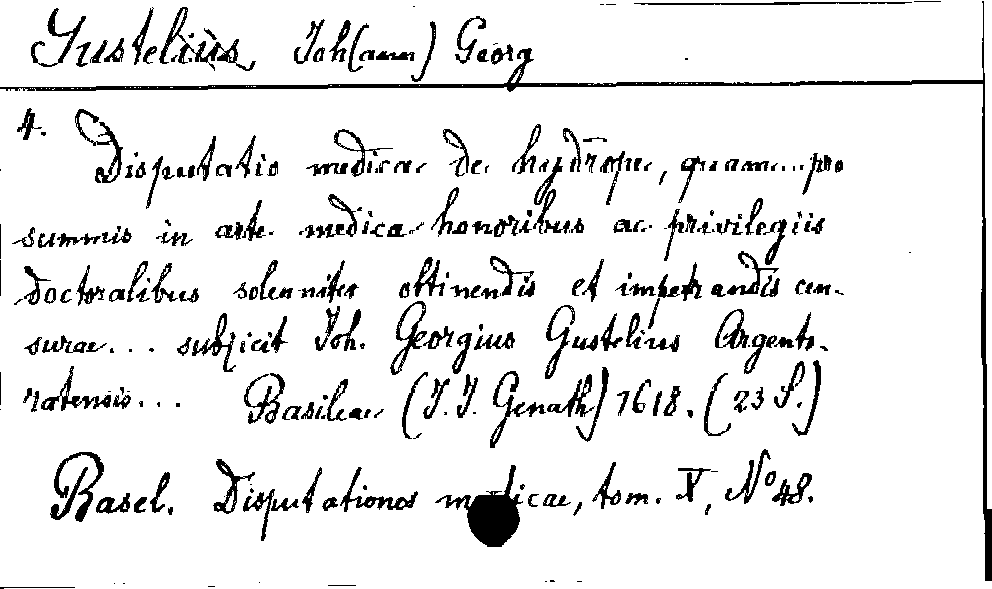 Gustelius, Joh(ann) Georg
4.
Disputatio medica de hydrope, quam... pro
summis in arte medica honoribus ac privilegiis
doctoralibus solenniter obtinendis et impetrandis cen-
surae... subjicit Joh. Georgius Gustelius Argento-
ratensis... Basileae (J. J. Genath) 1618. (23 S.)
Basel. Disputationes medicae, tom. X, No 48.